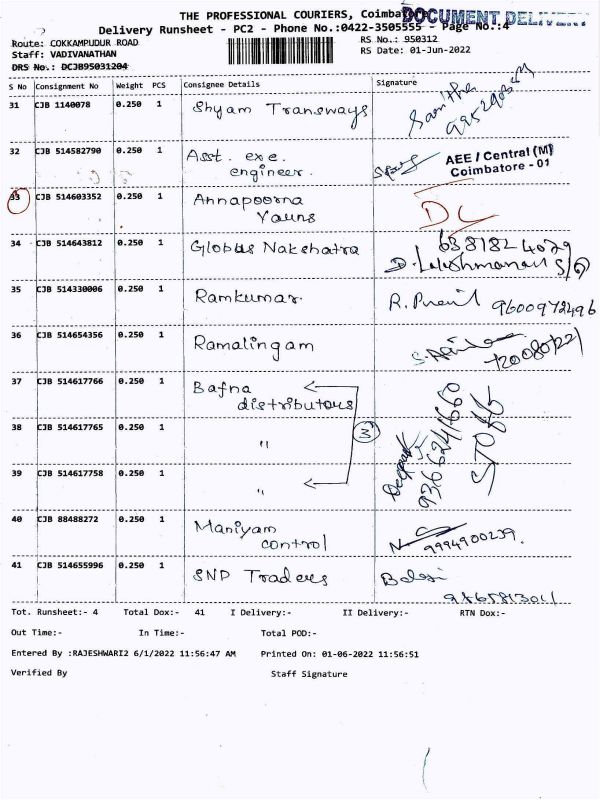 THE PROFESSIONAL COURIERS, Coimbatore
DOCUMENT DELIVERY
Delivery Runsheet - PC2 - Phone No.:0422-3505555 - Page No.:4
Route: COKKAMPUDUR ROAD
RS No.: 950312
Staff: VADIVANATHAN
RS Date: 01-Jun-2022
DRS No.: DCJB95031204
S No Consignment No Weight PCS Consignee Details Signature
31 CJB 1140078 0.250 1 Shyam Transways
32 CJB 514582790 0.250 1 Asst. exe. engineer. AEE / Central (M) Coimbatore - 01
33 CJB 514603352 0.250 1 Annapoorna Yauns DL
34 CJB 514643812 0.250 1 Globus Nakshatra 6381824079
D. Lakshmanan S/G
35 CJB 514330006 0.250 1 Ramkumar 9600972496
36 CJB 514654356 0.250 1 Ramalingam
37 CJB 514617766 0.250 1 Bafna distributous
38 CJB 514617765 0.250 1 " 3 Deepak 9366241660
39 CJB 514617758 0.250 1 "
40 CJB 88488272 0.250 1 Maniyam control 9994900239.
41 CJB 514655996 0.250 1 SND Traders
9865813011
Tot. Runsheet:- 4 Total Dox:- 41 I Delivery:- II Delivery:- RTN Dox:-
Out Time:- In Time:- Total POD:-
Entered By :RAJESHWARI2 6/1/2022 11:56:47 AM Printed On: 01-06-2022 11:56:51
Verified By Staff Signature